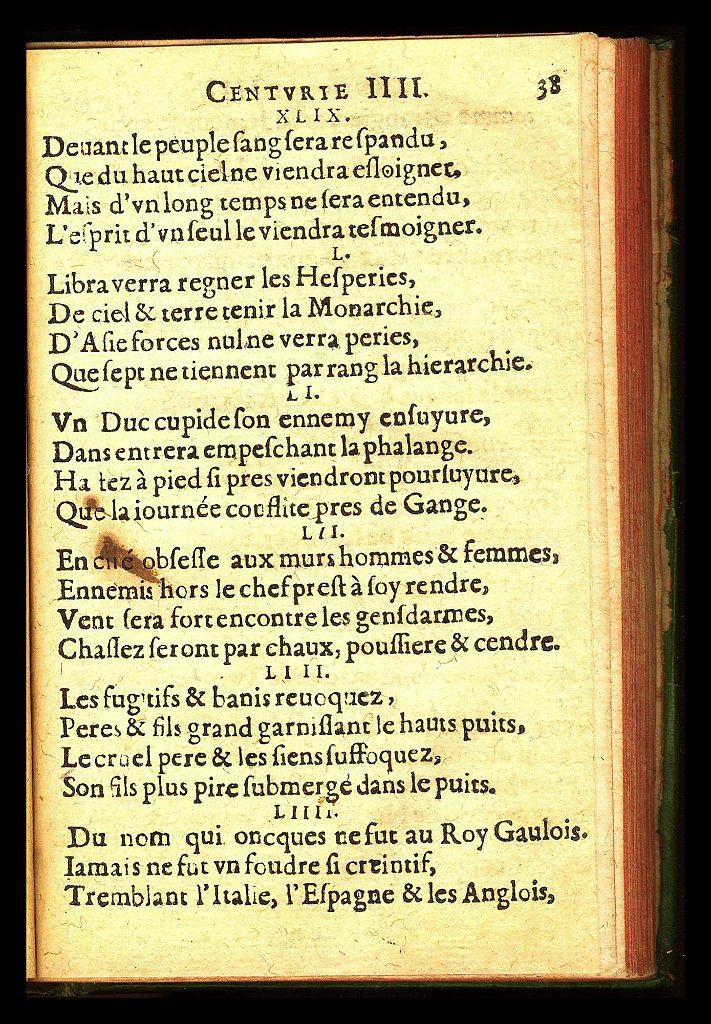 CENTVRIE IIII. 38
XLIX.
Deuant le peuple sang sera respandu,
Que du haut ciel ne viendra esloigner,
Mais d'vn long temps ne sera entendu,
L'esprit d'vn seul le viendra tesmoigner.
L.
Libra verra regner les Hesperies,
De ciel & terre tenir la Monarchie,
D'Asie forces nul ne verra peries,
Que sept ne tiennent par rang la hierarchie.
LI.
Vn Duc cupide son ennemy ensuyure,
Dans entrera empeschant la phalange.
Hastez à pied si pres viendront poursuyure,
Que la iournée conflite pres de Gange.
LII.
En cité obsesse aux murs hommes & femmes,
Ennemis hors le chef prest à soy rendre,
Vent sera fort encontre les gensdarmes,
Chassez seront par chaux, poussiere & cendre.
LIII.
Les fugitifs & banis reuoquez,
Peres & fils grand garnissant le hauts puits,
Le cruel pere & les siens suffoquez,
Son fils plus pire submergé dans le puits.
LIIII.
Du nom qui oncques ne fut au Roy Gaulois.
Iamais ne fut vn foudre si creintif,
Tremblant l'Italie, l'Espagne & les Anglois,